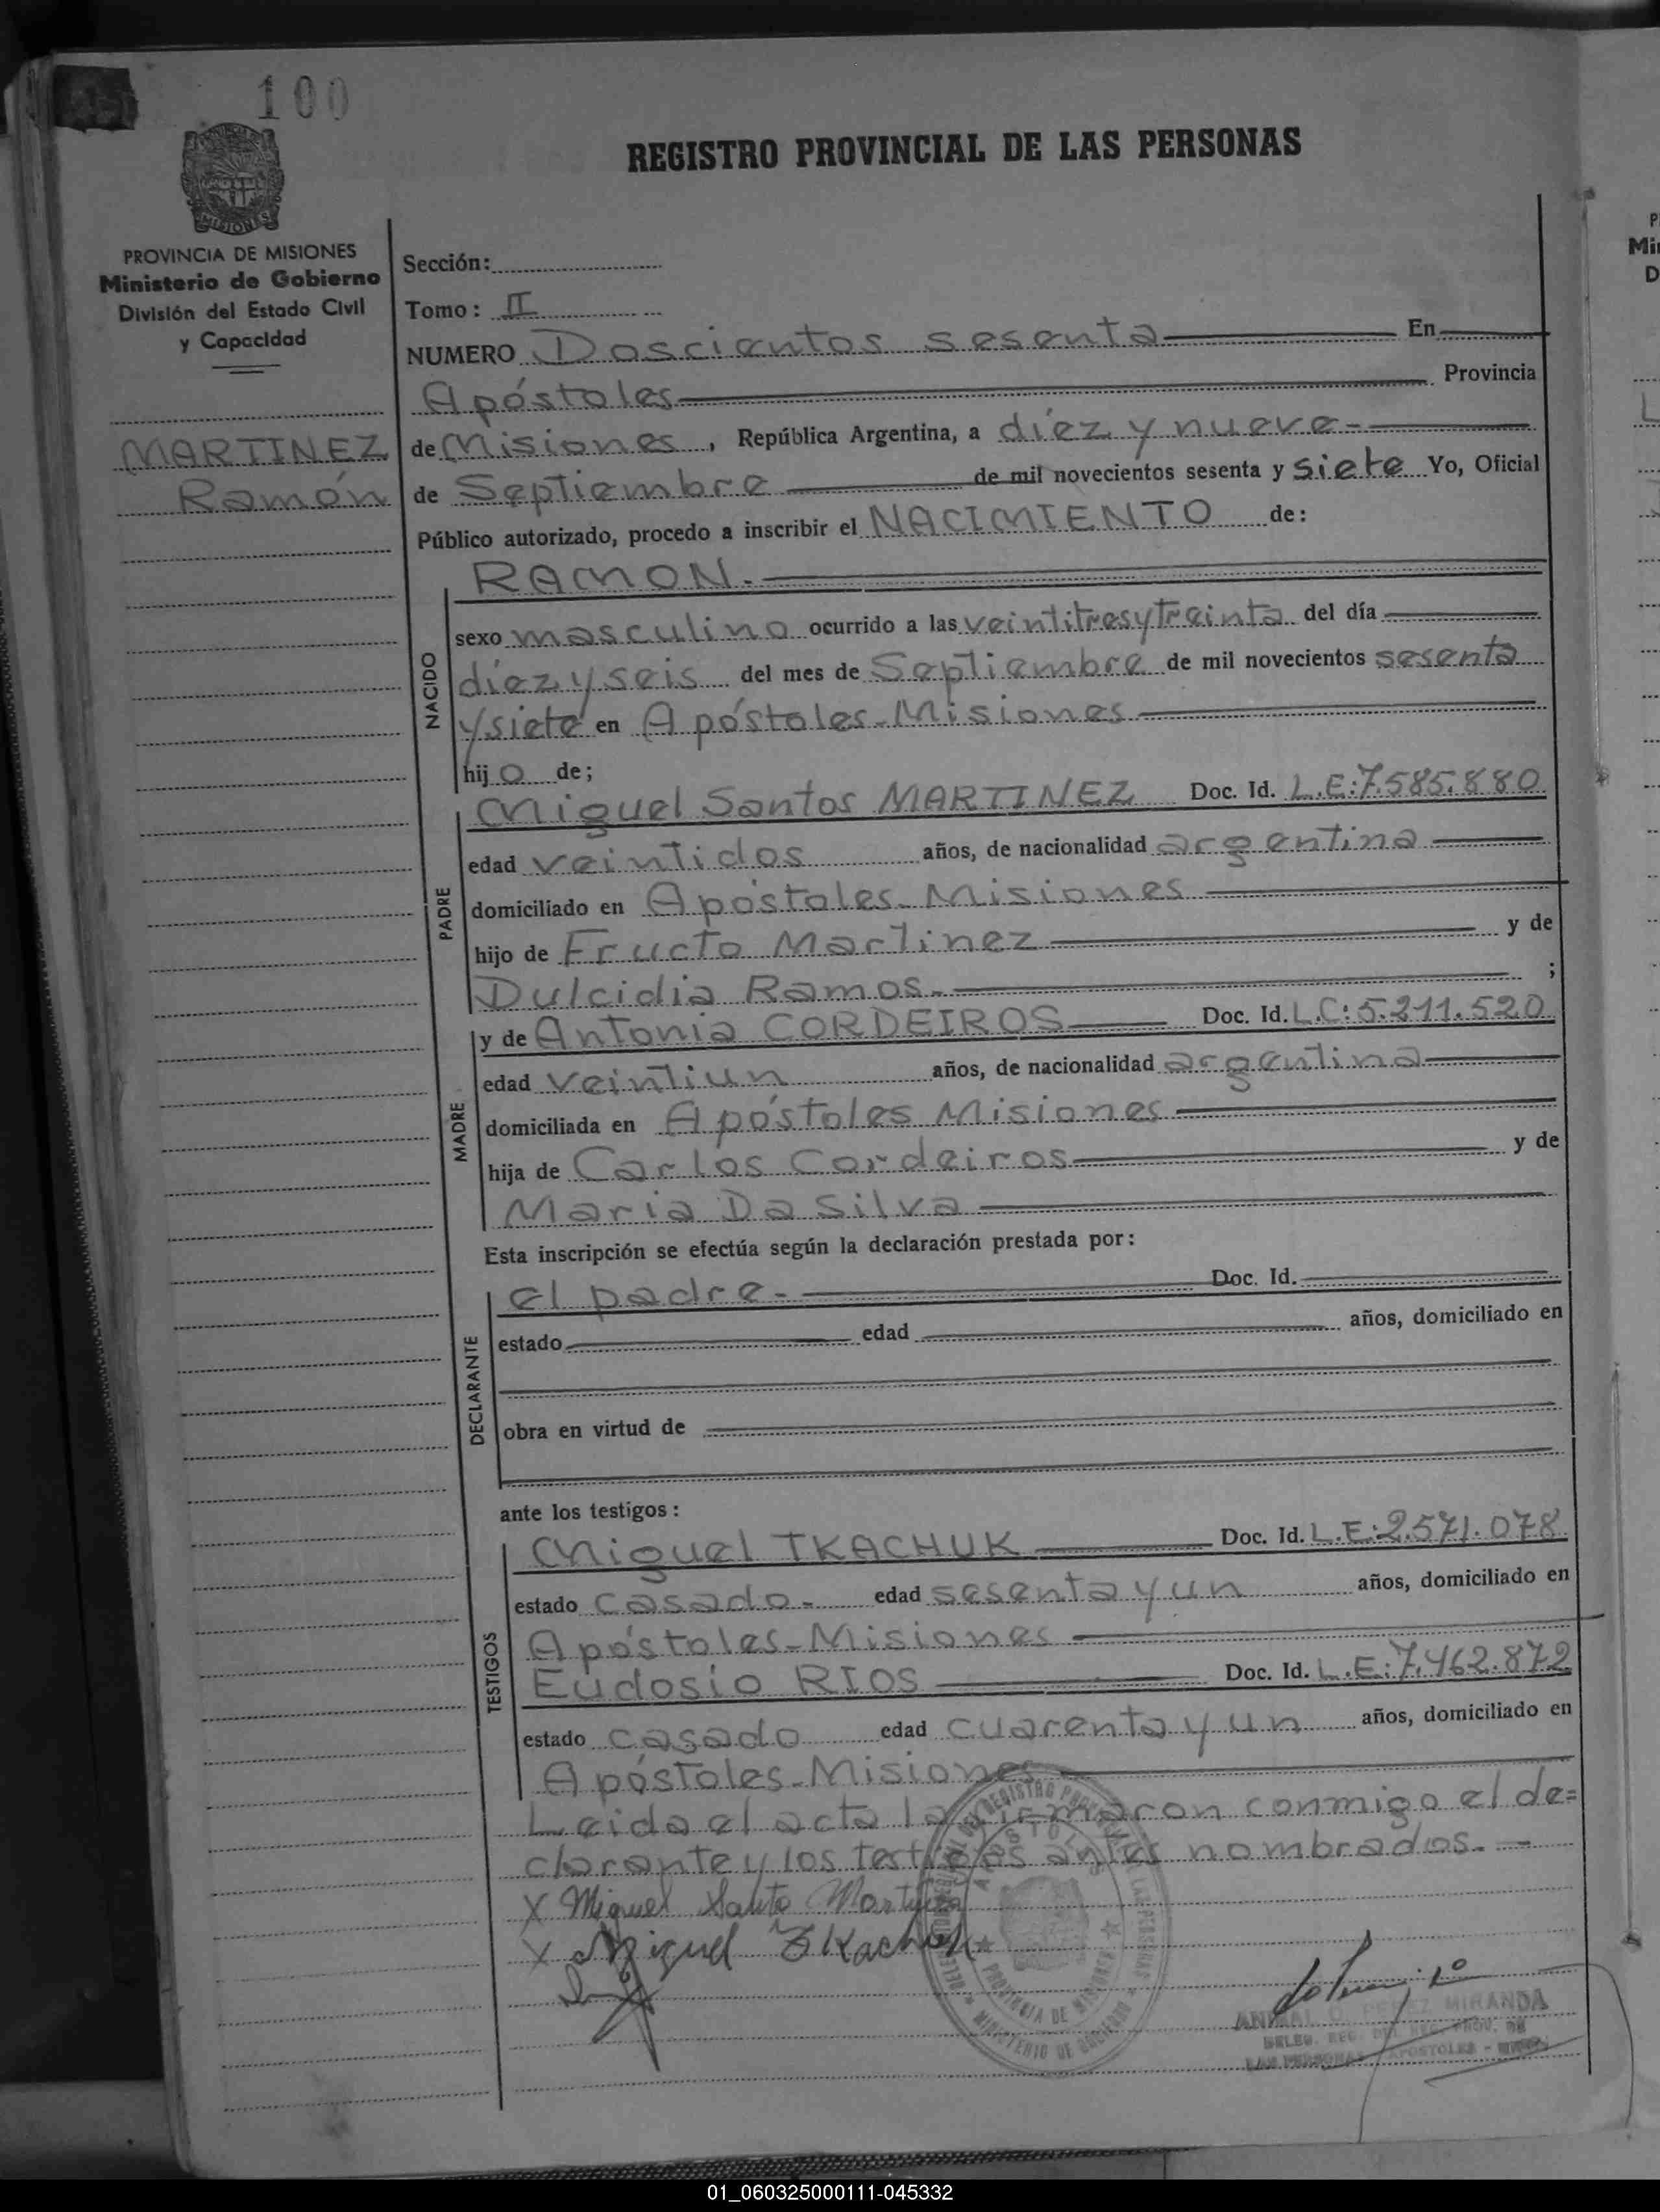 100
REGISTRO PROVINCIAL DE LAS PERSONAS
MISIONES
PROVINCIA DE MISIONES
Ministerio de Gobierno
División del Estado Civil
y Capacidad
MARTINEZ
Ramón
Sección:
Tomo: II
NUMERO Doscientos sesenta En
Apóstoles Provincia
de Misiones, República Argentina, a díez y nueve
de Septiembre de mil novecientos sesenta y siete Yo, Oficial
Público autorizado, procedo a inscribir el NACIMIENTO de:
NACIDO
RAMON.
sexo masculino ocurrido a las veintitres y treinta del día
díez y seis del mes de Septiembre de mil novecientos sesenta
y siete en Apóstoles-Misiones
hijo de;
PADRE
Miguel Santos MARTINEZ Doc. Id. L.E:7.585.880
edad veintidos años, de nacionalidad argentina
domiciliado en Apóstoles-Misiones
hijo de Fructo Martinez y de
Dulcidia Ramos. ;
MADRE
y de Antonia CORDEIROS Doc. Id. L.C: 5.211.520
edad veintiun años, de nacionalidad argentina
domiciliada en Apóstoles Misiones
hija de Carlos Cordeiros y de
Maria Da Silva
Esta inscripción se efectúa según la declaración prestada por:
DECLARANTE
el padre. Doc. Id.
estado edad años, domiciliado en
obra en virtud de
ante los testigos:
TESTIGOS
Miguel TKACHUK Doc. Id. L.E:2.571.078
estado casado. edad sesenta y un años, domiciliado en
Apóstoles-Misiones
Eudosio RIOS Doc. Id. L.E:7.462.872
estado casado edad cuarenta y un años, domiciliado en
Apóstoles-Misiones
Leida el acta la firmaron conmigo el de=
clarante y los testigos antes nombrados.
X Miguel Santo Martinez
X Miguel Tkachuk
PROVINCIA DE MISIONES
MINISTERIO DE GOBIERNO
PEREZ MIRANDA
LAS PERSONAS APOSTOLES
01_060325000111-045332